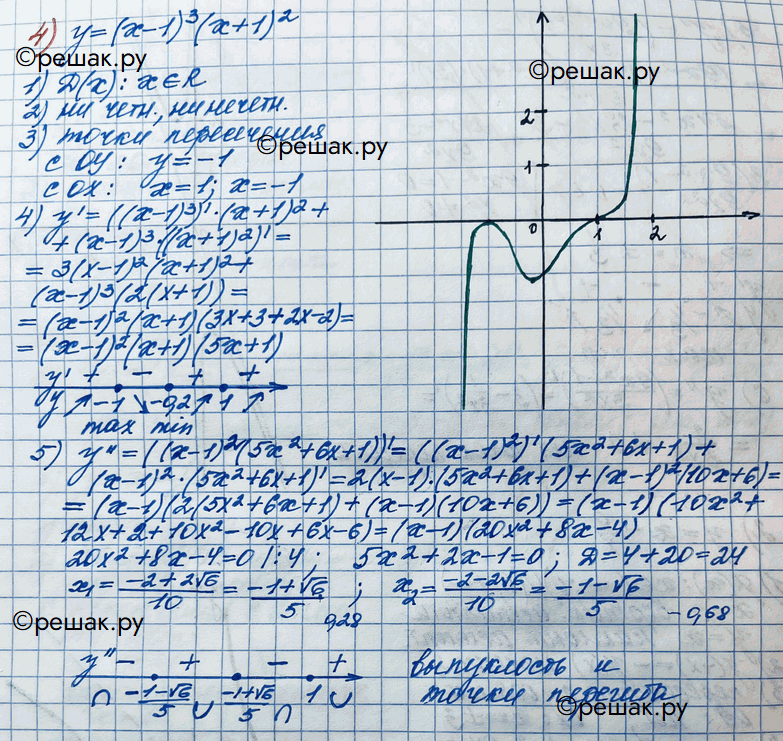 4) y=(x-1)³(x+1)²
©решак.ру
1) D(x): x∈R
2) ни четн., ни нечетн.
3) точки пересечения
©решак.ру
с OY: y=-1
с OX: x=1; x=-1
4) y'=((x-1)³)'·(x+1)²+
+(x-1)³·((x+1)²)'=
=3(x-1)²(x+1)²+
(x-1)³(2(x+1))=
=(x-1)²(x+1)(3x+3+2x-2)=
=(x-1)²(x+1)(5x+1)
y' + - + +
y ↗ -1 ↘ -0,2 ↗ 1 ↗
max min
©решак.ру
2
1
0 1 2
5) y''=((x-1)²(5x²+6x+1))'=((x-1)²)'(5x²+6x+1)+
(x-1)²·(5x²+6x+1)'=2(x-1)·(5x²+6x+1)+(x-1)²(10x+6)=
=(x-1)(2(5x²+6x+1)+(x-1)(10x+6))=(x-1)(10x²+
12x+2+10x²-10x+6x-6)=(x-1)(20x²+8x-4)
20x²+8x-4=0 |:4; 5x²+2x-1=0; D=4+20=24
x₁=(-2+2√6)/10=(-1+√6)/5; x₂=(-2-2√6)/10=(-1-√6)/5
0,28 -0,68
©решак.ру
y'' - + - +
∩ (-1-√6)/5 ∪ (-1+√6)/5 ∩ 1 ∪
выпуклость и
точки перегиба
©решак.ру